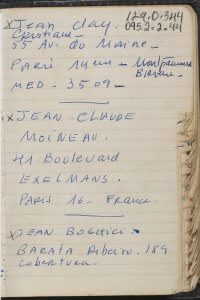 129.0.344
x Jean Clay.
095.2.2.44
Cristiane -
55 Av. du Maine -
Paris 14em - Montparnasse
Bienvenue -
MED - 35 09 -
x JEAN-CLAUDE
MOINEAU.
41 Boulevard
EXELMANS.
PARIS 16 - France.
x JEAN BOGHICI -
BARATA Ribeiro - 189
Cobertura -